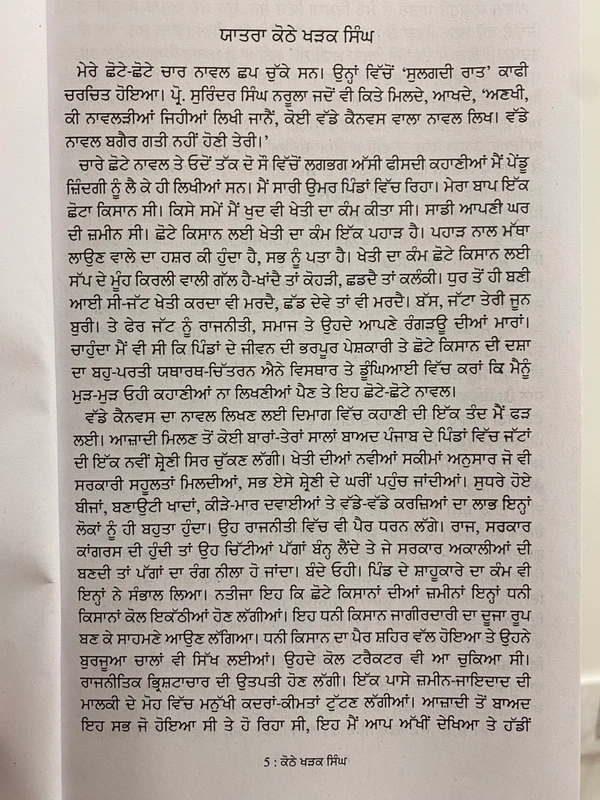 ਯਾਤਰਾ ਕੋਠੇ ਖੜਕ ਸਿੰਘ
ਮੇਰੇ ਛੋਟੇ-ਛੋਟੇ ਚਾਰ ਨਾਵਲ ਛਪ ਚੁੱਕੇ ਸਨ। ਉਨ੍ਹਾਂ ਵਿੱਚੋਂ ‘ਸੁਲਗਦੀ ਰਾਤ’ ਕਾਫੀ
ਚਰਚਿਤ ਹੋਇਆ। ਪ੍ਰੋ. ਸੁਰਿੰਦਰ ਸਿੰਘ ਨਰੂਲਾ ਜਦੋਂ ਵੀ ਕਿਤੇ ਮਿਲਦੇ, ਆਖਦੇ, ‘ਅਣਖੀ,
ਕੀ ਨਾਵਲੜੀਆਂ ਜਿਹੀਆਂ ਲਿਖੀ ਜਾਨੈਂ, ਕੋਈ ਵੱਡੇ ਕੈਨਵਸ ਵਾਲਾ ਨਾਵਲ ਲਿਖ। ਵੱਡੇ
ਨਾਵਲ ਬਗੈਰ ਗਤੀ ਨਹੀਂ ਹੋਣੀ ਤੇਰੀ।’
ਚਾਰੇ ਛੋਟੇ ਨਾਵਲ ਤੇ ਓਦੋਂ ਤੱਕ ਦੋ ਸੌ ਵਿੱਚੋਂ ਲਗਭਗ ਅੱਸੀ ਫੀਸਦੀ ਕਹਾਣੀਆਂ ਮੈਂ ਪੇਂਡੂ
ਜ਼ਿੰਦਗੀ ਨੂੰ ਲੈ ਕੇ ਹੀ ਲਿਖੀਆਂ ਸਨ। ਮੈਂ ਸਾਰੀ ਉਮਰ ਪਿੰਡਾਂ ਵਿੱਚ ਰਿਹਾ। ਮੇਰਾ ਬਾਪ ਇੱਕ
ਛੋਟਾ ਕਿਸਾਨ ਸੀ। ਕਿਸੇ ਸਮੇਂ ਮੈਂ ਖੁਦ ਵੀ ਖੇਤੀ ਦਾ ਕੰਮ ਕੀਤਾ ਸੀ। ਸਾਡੀ ਆਪਣੀ ਘਰ
ਦੀ ਜ਼ਮੀਨ ਸੀ। ਛੋਟੇ ਕਿਸਾਨ ਲਈ ਖੇਤੀ ਦਾ ਕੰਮ ਇੱਕ ਪਹਾੜ ਹੈ। ਪਹਾੜ ਨਾਲ ਮੱਥਾ
ਲਾਉਣ ਵਾਲੇ ਦਾ ਹਸ਼ਰ ਕੀ ਹੁੰਦਾ ਹੈ, ਸਭ ਨੂੰ ਪਤਾ ਹੈ। ਖੇਤੀ ਦਾ ਕੰਮ ਛੋਟੇ ਕਿਸਾਨ ਲਈ
ਸੱਪ ਦੇ ਮੂੰਹ ਕਿਰਲੀ ਵਾਲੀ ਗੱਲ ਹੈ-ਖਾਂਦੈ ਤਾਂ ਕੋਹੜੀ, ਛਡਦੈ ਤਾਂ ਕਲੰਕੀ। ਧੁਰ ਤੋਂ ਹੀ ਬਣੀ
ਆਈ ਸੀ-ਜੱਟ ਖੇਤੀ ਕਰਦਾ ਵੀ ਮਰਦੈ, ਛੱਡ ਦੇਵੇ ਤਾਂ ਵੀ ਮਰਦੈ। ਬੱਸ, ਜੱਟਾ ਤੇਰੀ ਜੂਨ
ਬੁਰੀ। ਤੇ ਫੇਰ ਜੱਟ ਨੂੰ ਰਾਜਨੀਤੀ, ਸਮਾਜ ਤੇ ਉਹਦੇ ਆਪਣੇ ਰੰਗੜਊ ਦੀਆਂ ਮਾਰਾਂ।
ਚਾਹੁੰਦਾ ਮੈਂ ਵੀ ਸੀ ਕਿ ਪਿੰਡਾਂ ਦੇ ਜੀਵਨ ਦੀ ਭਰਪੂਰ ਪੇਸ਼ਕਾਰੀ ਤੇ ਛੋਟੇ ਕਿਸਾਨ ਦੀ ਦਸ਼ਾ
ਦਾ ਬਹੁ-ਪਰਤੀ ਯਥਾਰਥ-ਚਿੱਤਰਨ ਐਨੇ ਵਿਸਥਾਰ ਤੇ ਡੂੰਘਿਆਈ ਵਿੱਚ ਕਰਾਂ ਕਿ ਮੈਨੂੰ
ਮੁੜ-ਮੁੜ ਓਹੀ ਕਹਾਣੀਆਂ ਨਾ ਲਿਖਣੀਆਂ ਪੈਣ ਤੇ ਇਹ ਛੋਟੇ-ਛੋਟੇ ਨਾਵਲ।
ਵੱਡੇ ਕੈਨਵਸ ਦਾ ਨਾਵਲ ਲਿਖਣ ਲਈ ਦਿਮਾਗ ਵਿੱਚ ਕਹਾਣੀ ਦੀ ਇੱਕ ਤੰਦ ਮੈਂ ਫੜ
ਲਈ। ਆਜ਼ਾਦੀ ਮਿਲਣ ਤੋਂ ਕੋਈ ਬਾਰਾਂ-ਤੇਰਾਂ ਸਾਲਾਂ ਬਾਅਦ ਪੰਜਾਬ ਦੇ ਪਿੰਡਾਂ ਵਿੱਚ ਜੱਟਾਂ
ਦੀ ਇੱਕ ਨਵੀਂ ਸ਼੍ਰੇਣੀ ਸਿਰ ਚੁੱਕਣ ਲੱਗੀ। ਖੇਤੀ ਦੀਆਂ ਨਵੀਆਂ ਸਕੀਮਾਂ ਅਨੁਸਾਰ ਜੋ ਵੀ
ਸਰਕਾਰੀ ਸਹੂਲਤਾਂ ਮਿਲਦੀਆਂ, ਸਭ ਏਸੇ ਸ਼੍ਰੇਣੀ ਦੇ ਘਰੀਂ ਪਹੁੰਚ ਜਾਂਦੀਆਂ। ਸੁਧਰੇ ਹੋਏ
ਬੀਜਾਂ, ਬਣਾਉਟੀ ਖਾਦਾਂ, ਕੀੜੇ-ਮਾਰ ਦਵਾਈਆਂ ਤੇ ਵੱਡੇ-ਵੱਡੇ ਕਰਜ਼ਿਆਂ ਦਾ ਲਾਭ ਇਨ੍ਹਾਂ
ਲੋਕਾਂ ਨੂੰ ਹੀ ਬਹੁਤਾ ਹੁੰਦਾ। ਉਹ ਰਾਜਨੀਤੀ ਵਿੱਚ ਵੀ ਪੈਰ ਧਰਨ ਲੱਗੇ। ਰਾਜ, ਸਰਕਾਰ
ਕਾਂਗਰਸ ਦੀ ਹੁੰਦੀ ਤਾਂ ਉਹ ਚਿੱਟੀਆਂ ਪੱਗਾਂ ਬੰਨ੍ਹ ਲੈਂਦੇ ਤੇ ਜੇ ਸਰਕਾਰ ਅਕਾਲੀਆਂ ਦੀ
ਬਣਦੀ ਤਾਂ ਪੱਗਾਂ ਦਾ ਰੰਗ ਨੀਲਾ ਹੋ ਜਾਂਦਾ। ਬੰਦੇ ਓਹੀ। ਪਿੰਡ ਦੇ ਸ਼ਾਹੂਕਾਰੇ ਦਾ ਕੰਮ ਵੀ
ਇਨ੍ਹਾਂ ਨੇ ਸੰਭਾਲ ਲਿਆ। ਨਤੀਜਾ ਇਹ ਕਿ ਛੋਟੇ ਕਿਸਾਨਾਂ ਦੀਆਂ ਜ਼ਮੀਨਾਂ ਇਨ੍ਹਾਂ ਧਨੀ
ਕਿਸਾਨਾਂ ਕੋਲ ਇਕੱਠੀਆਂ ਹੋਣ ਲੱਗੀਆਂ। ਇਹ ਧਨੀ ਕਿਸਾਨ ਜਾਗੀਰਦਾਰੀ ਦਾ ਦੂਜਾ ਰੂਪ
ਬਣ ਕੇ ਸਾਹਮਣੇ ਆਉਣ ਲੱਗਿਆ। ਧਨੀ ਕਿਸਾਨ ਦਾ ਪੈਰ ਸ਼ਹਿਰ ਵੱਲ ਹੋਇਆ ਤੇ ਉਹਨੇ
ਬੁਰਜੂਆ ਚਾਲਾਂ ਵੀ ਸਿੱਖ ਲਈਆਂ। ਉਹਦੇ ਕੋਲ ਟਰੈਕਟਰ ਵੀ ਆ ਚੁਕਿਆ ਸੀ।
ਰਾਜਨੀਤਿਕ ਭ੍ਰਿਸ਼ਟਾਚਾਰ ਦੀ ਉਤਪਤੀ ਹੋਣ ਲੱਗੀ। ਇੱਕ ਪਾਸੇ ਜ਼ਮੀਨ-ਜਾਇਦਾਦ ਦੀ
ਮਾਲਕੀ ਦੇ ਮੋਹ ਵਿੱਚ ਮਨੁੱਖੀ ਕਦਰਾਂ-ਕੀਮਤਾਂ ਟੁੱਟਣ ਲੱਗੀਆਂ। ਆਜ਼ਾਦੀ ਤੋਂ ਬਾਅਦ
ਇਹ ਸਭ ਜੋ ਹੋਇਆ ਸੀ ਤੇ ਹੋ ਰਿਹਾ ਸੀ, ਇਹ ਮੈਂ ਆਪ ਅੱਖੀਂ ਦੇਖਿਆ ਤੇ ਹੱਡੀਂ
5 : ਕੋਠੇ ਖੜਕ ਸਿੰਘ